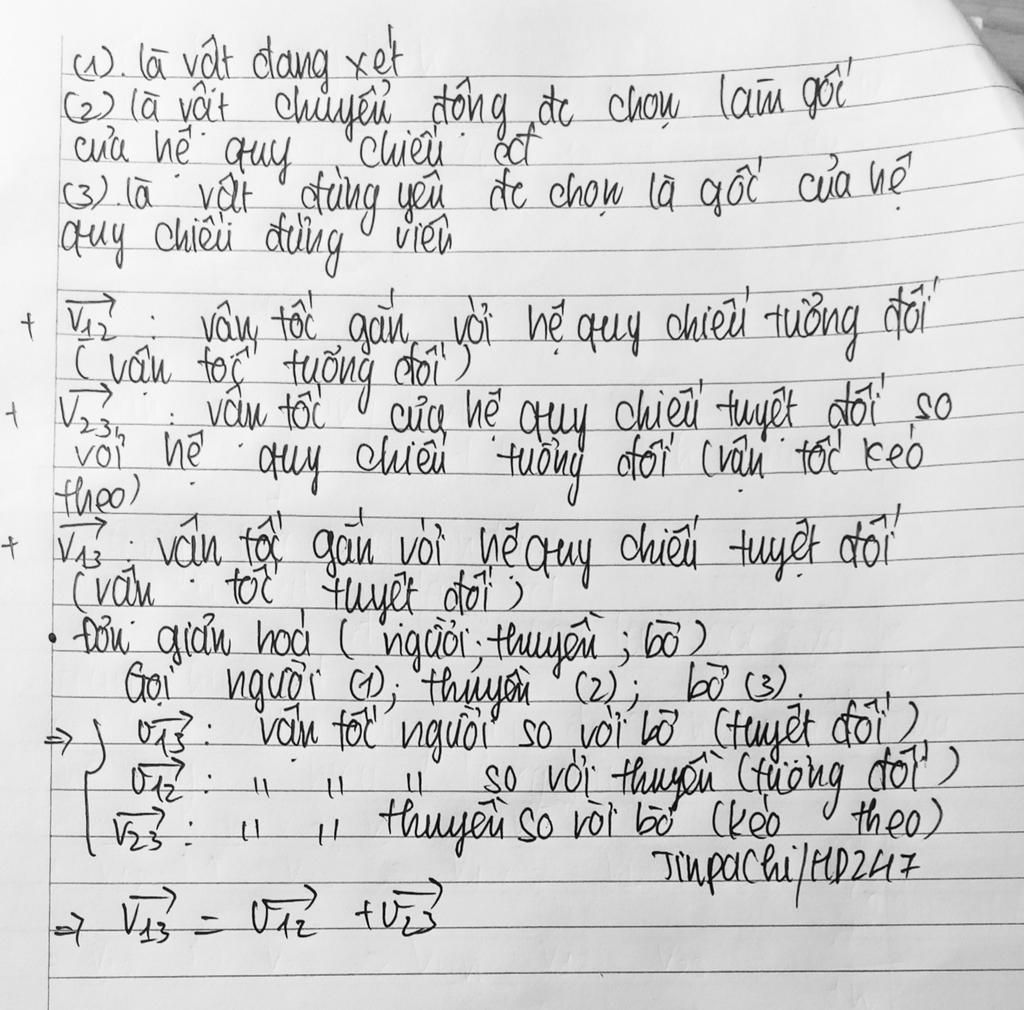 (1). là vật đang xét
(2) là vật chuyển động đc chọn làm gốc
của hệ quy chiếu cđ
(3). là vật đứng yên đc chọn là gốc của hệ
quy chiếu đứng viên
+ V12 : vận tốc gắn với hệ quy chiếu tương đối
(vận tốc tương đối)
+ V23 : vận tốc của hệ quy chiếu tuyệt đối so
với hệ quy chiếu tương đối (vận tốc kéo
theo)
+ V13 : vận tốc gắn với hệ quy chiếu tuyệt đối
(vận tốc tuyệt đối)
• Đơn giản hoá (người; thuyền; bờ)
Gọi người (1); thuyền (2); bờ (3).
=> { v13 : vận tốc người so với bờ (tuyệt đối)
v12 : " " " so với thuyền (tương đối)
V23 : " " thuyền so với bờ (kéo theo)
JinpaChi/HD247
=> V13 = v12 + v23